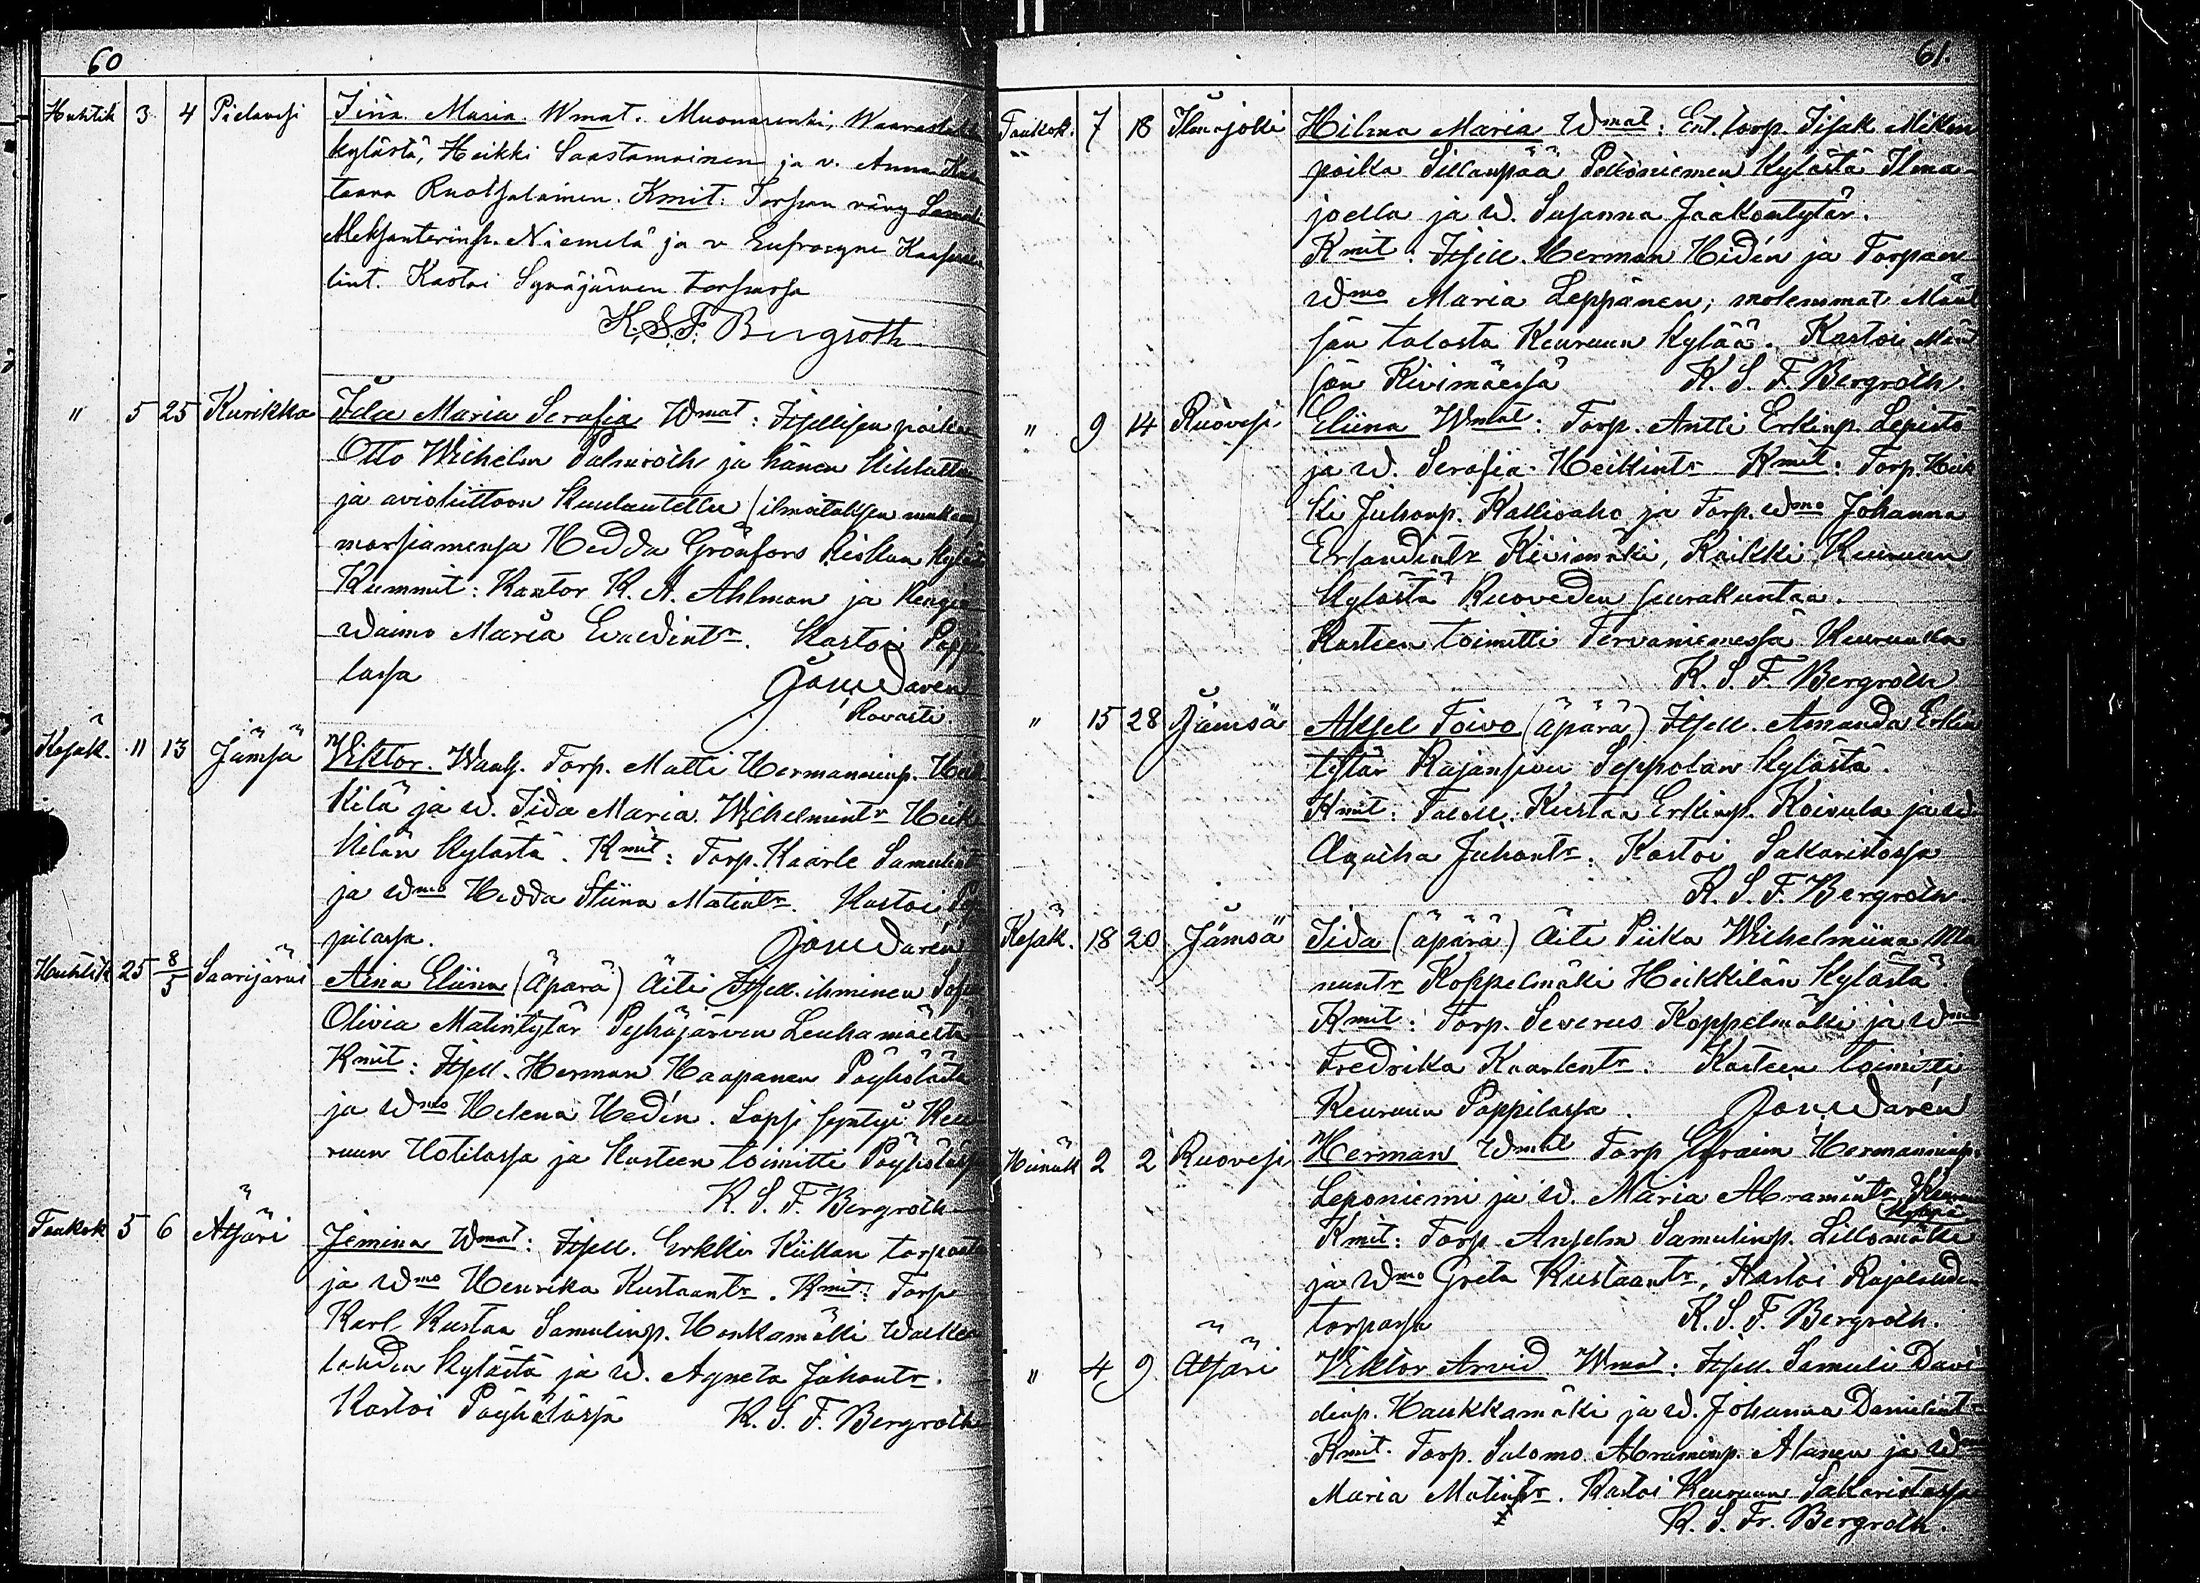 60
Huhtik 3 4 Pielavesi Iina Maria. Wmat. Muonarenki,
kylästä, Heikki Saastamoinen ja v. Anna
taava Ruotsalainen. Kmit: Torpan
Aleksanterinp. Niemelä ja v Eufrosyne
tint. Kastoi Synäjärven torpassa
K. S. F. Bergroth
" 5 25 Kurikka Ida Maria Serafia Wmat: Itsellisen poika
Otto Wilhelm Palmroth ja hänen kihlattu
ja avioliittoon kuulutettu (ilmoituksen mukaan)
morsiamensa Hedda Grönfors
Kummit: Kantor K. A. Ahlman ja Rengin
waimo Maria Evedintr. Kastoi Pappi
lassa
Rovasti
Kesäk. 11 13 Jämsä Viktor. Wanh. Torp. Matti Hermanninp. Heik
kilä ja w. Iida Maria Wilhelmintr Heik
kilän kylästä. Kmit: Torp. Kaarle
ja wmo Hedda Stiina Matintr. Kastoi Pap
pilassa.
Huhtik 25 8/5 Saarijärvi Aina Eliina (Äpärä) Äiti Itsell. ihminen
Olivia Matintytär Pyhäjärven Leuhamäeltä
Kmit: Itsell. Herman Haapanen Pöyhölästä
ja wmo Helena Hedin. Lapsi syntyi Keu
ruun Hotilassa ja kasteen toimitti Pöyhölässä
K. S. F. Bergroth
Toukok 5 6 Ätsäri Jemina Wmat: Itsell. Erkki torpasta
ja wmo Henrika Kustaantr. Kmit: Torp
Karl Kustaa Samulinp. Honkamäki
kylästä ja w. Agneta Juhantr.
Kastoi Pöyhölässä K. S. F. Bergroth
61.
Toukok. 7 18 Ilmajoki Hilma Maria Wmat: Ent. torp. Iisak
poika Sillanpää Peltoniemen kylästä Ilma-
joella ja w. Susanna Jaakontytär.
Kmit: Itsell. Herman Hedin ja Torpan
wmo Maria Leppänen; molemmat Mänt
sän talosta Keuruun kylää. Kastoi Mänt
sän Kivimäessä K. S. F. Bergroth.
" 9 14 Ruovesi Eliina Wmat: Torp. Antti Erkinp. Lepistö
ja w. Serafia Heikintr Kmit: Torp. Heik
ki Juhonp. Kallioaho ja Torp. wmo Johanna
Erlandintr Kivimäki, Kaikki Keuruun
kylästä Ruoveden seurakuntaa.
Kasteen toimitti Tervaniemessä
K. S. F. Bergroth
" 15 28 Jämsä Aksel Toivo (äpärä) Itsell. Amanda Erkin
tytär Rajansuu Seppolan kylästä.
Kmit: Kustaa Erkinp. Koivula ja w
Agatha Juhantr. Kastoi Sakaristossa
K. S. F. Bergroth.
Kesäk. 18 20 Jämsä Iida (äpärä) Äiti Piika Wilhelmiina
nuntr Koppelmäki Heikkilän kylästä.
Kmit: Torp. Severus Koppelmäki ja wmo
Fredrika Kaarlentr. Kasteen toimitti
Keuruun Pappilassa.
Heinäk 2 2 Ruovesi Herman Wmat Torp Efraim Hermanninp.
Leponiemi ja w. Maria Abramintr
Kmit: Torp Anselm Samulinp.
ja wmo Greta Kustaantr, Kastoi
torpassa K. S. F. Bergroth.
" 4 9 Ätsäri Viktor Arvid Wmat: Itsell. Samuli Davi-
dinp. Haukkamäki ja w. Johanna
Kmit. Torp. Salomo Abraminp. Alanen ja wmo
Maria Matintr. Kastoi Keuruun Sakaristossa
K. S. Fr. Bergroth.